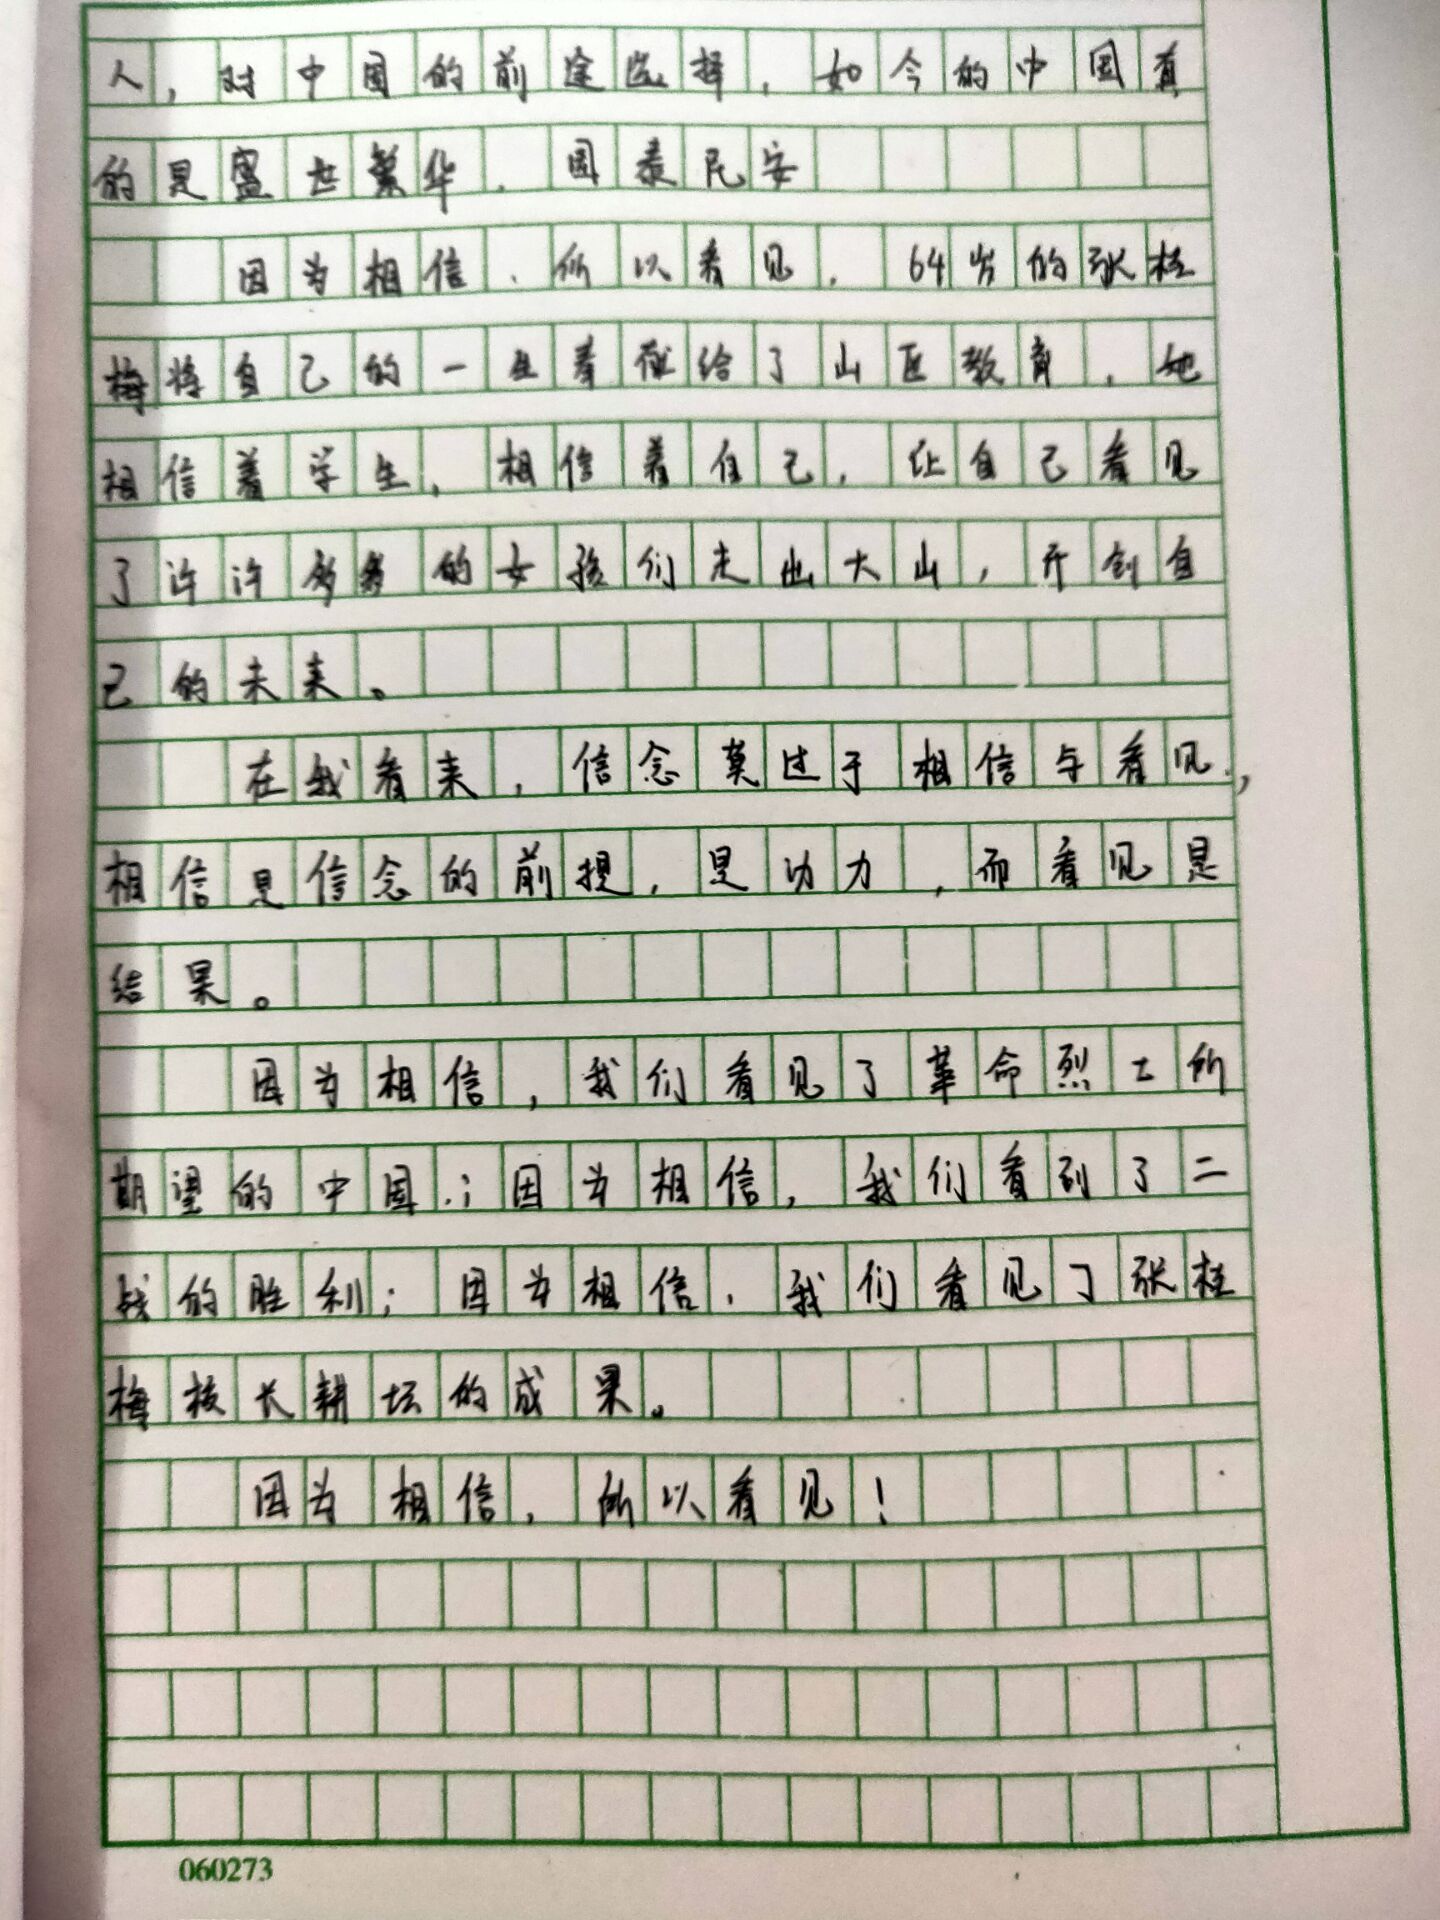 人，对中国的前途选择，如今的中国真
的是盛世繁华，国泰民安
因为相信，所以看见，64岁的张桂
梅将自己的一生奉献给了山区教育，她
相信着学生，相信着自己，让自己看见
了许许多多的女孩们走出大山，开创自
己的未来。
在我看来，信念莫过于相信与看见，
相信是信念的前提，是功力，而看见是
结果。
因为相信，我们看见了革命烈士所
期望的中国；因为相信，我们看到了二
战的胜利；因为相信，我们看见了张桂
梅校长耕坛的成果。
因为相信，所以看见！
060273